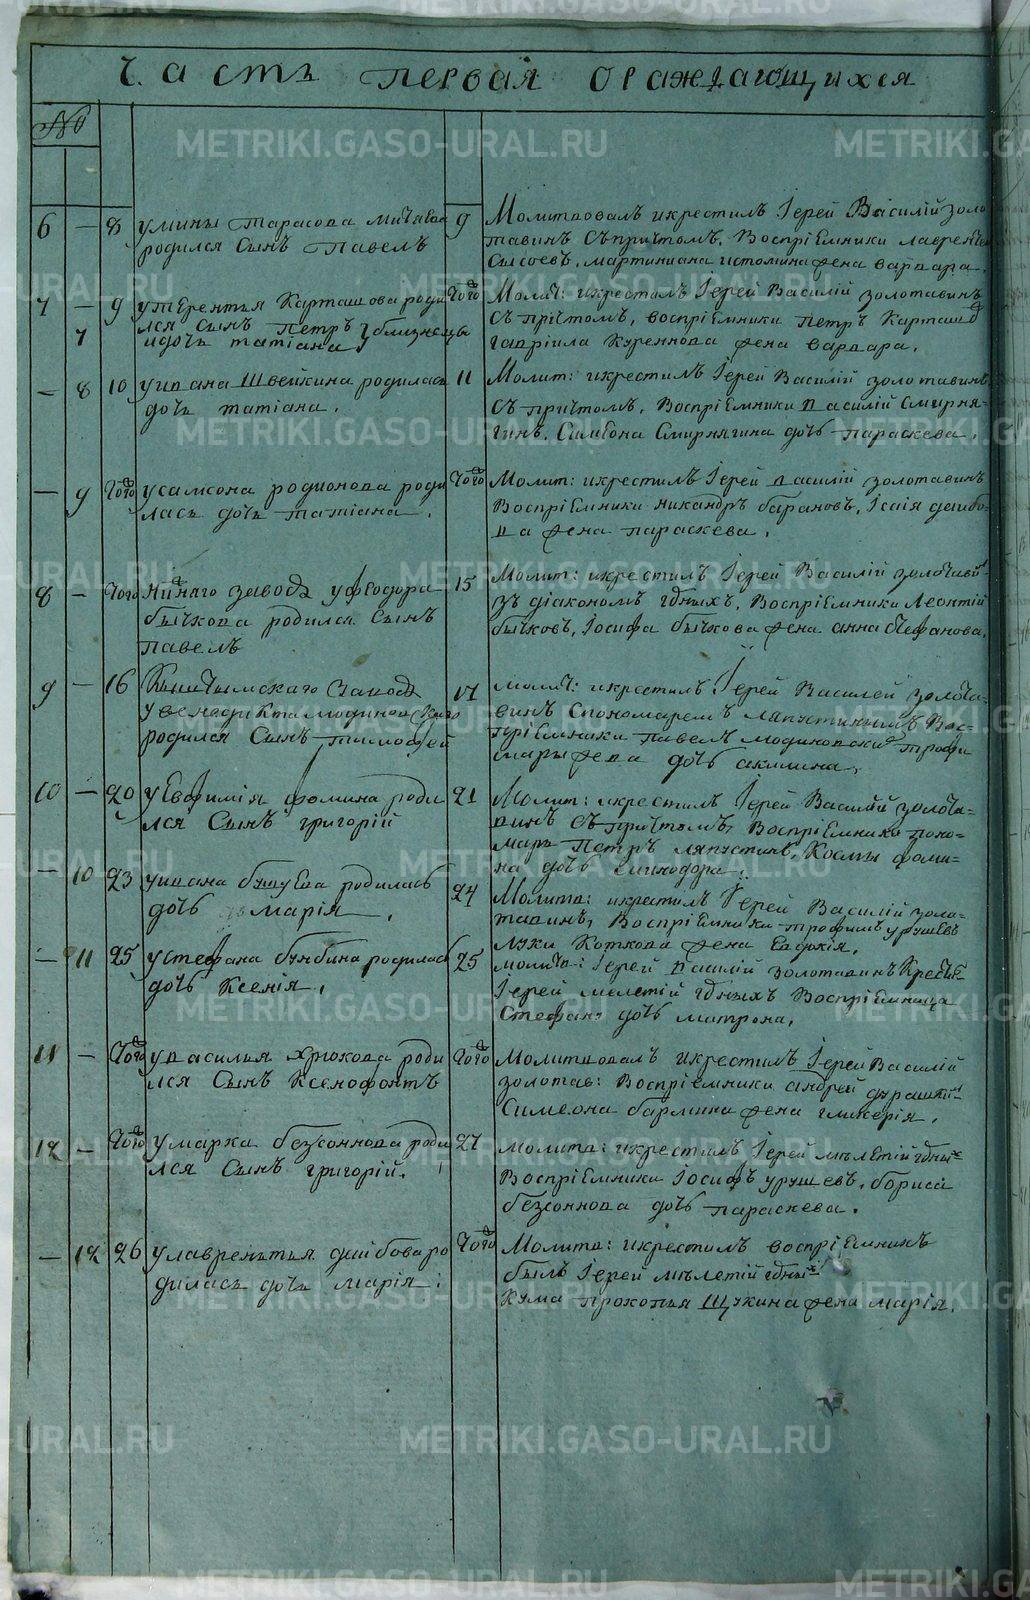 Часть первая Ораждающихся
№
6 — 8 умины Тарасова
родился Сынъ Павелъ
9 Молитвовалъ икрестилъ Іерей Василій золо
тавинъ Съпричтомъ, Воспріемники
Сысоевъ, мартиниана истомина жена варвара.
7 — 9 утерентья Карташова роди
лся Сынъ Петръ близнецы
7 идочь татіана
Того Молит: икрестилъ Іерей Василій золотавинъ
Съ причтомъ, воспріемники Петръ Карташов
гавріила Куреннова жена варвара.
— 8 10 уивана Швейкина родилась
дочь татіана.
11 Молит: икрестилъ Іерей Василій золотавинъ
Съ причтомъ, Воспріемники Василій Смирня-
гинъ, Симеона Смирнягина дочь параскева.
— 9 Того усамсона родионова роди
лась дочь татіана.
Того Молит: икрестилъ Іерей василій золотавинъ
Воспріемники никандръ барановъ, Ісаія
ва жена параскева.
8 — Того завода уфеодора
бычкова родился Сынъ
павелъ
15 Молит: икрестилъ Іерей Василій
зъ діакономъ Воспріемники Леонтій
бычковъ, Іосифа бычкова жена анна Стефанова.
9 — 16 Кыштымскаго Завода
увенедиктамодиновскаго
родился Сынъ тимофей
17 молит: икрестилъ Іерей Василей золота-
винъ Спономаремъ ляпустинымъ Вос-
пріемники павелъ
дочь акилина.
10 — 20 уЕвфимія фомина роди
лся Сынъ григорій
21 Молит: икрестилъ Іерей Василій золота-
винъ Съ причтомъ, Воспріемники поно-
марь Петръ ляпустинъ, Космы фоми-
на дочь
— 10 23 уивана бушуева родилась
дочь марія.
24 Молитв: икрестилъ Іерей Василій золо-
тавинъ, Воспріемники трофимъ урушевъ
луки Коткова жена Евдокія.
— 11 25 устефана бунбина родилась
дочь Ксенія.
25 молитв: Іерей василій золотавинъ
Іерей мелетій Воспріемница
Стефана дочь матрона.
11 — Того увасилья хрюкова роди
лся Сынъ Ксенофонтъ
Того Молитвовалъ икрестилъ Іерей Василій
золотав: Воспріемники андрей
Симеона бармина жена гликерія.
12 — Того умарка безсоннова роди
лся Сынъ григорій.
27 молитв: икрестилъ Іерей мѣлетій
Воспріемники Іосифъ урушевъ, бориса
безсоннова дочь параскева.
— 12 26 улаврентья ро
дилась дочь марія:
Того Молитв: икрестилъ воспріемникъ
былъ Іерей мѣлетій
Кума прокопья Щукина жена марія.
METRIKI.GASO-URAL.RU